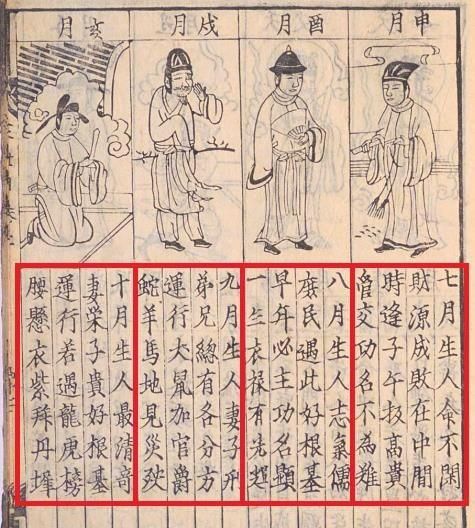 申月
酉月
戌月
亥月
七月生人命不閑
財源成敗在中間
時逢子午投高貴
管交功名不為難
八月生人志氣儒
庶民遇此好根基
早年必主功名顯
一衣祿有先
九月生人妻子刑
弟兄總有各分方
運行大鼠加官爵
蛇羊馬地見災殃
十月生人最清奇
妻榮子貴好根基
運行若遇龍虎榜
腰懸衣紫拜丹墀